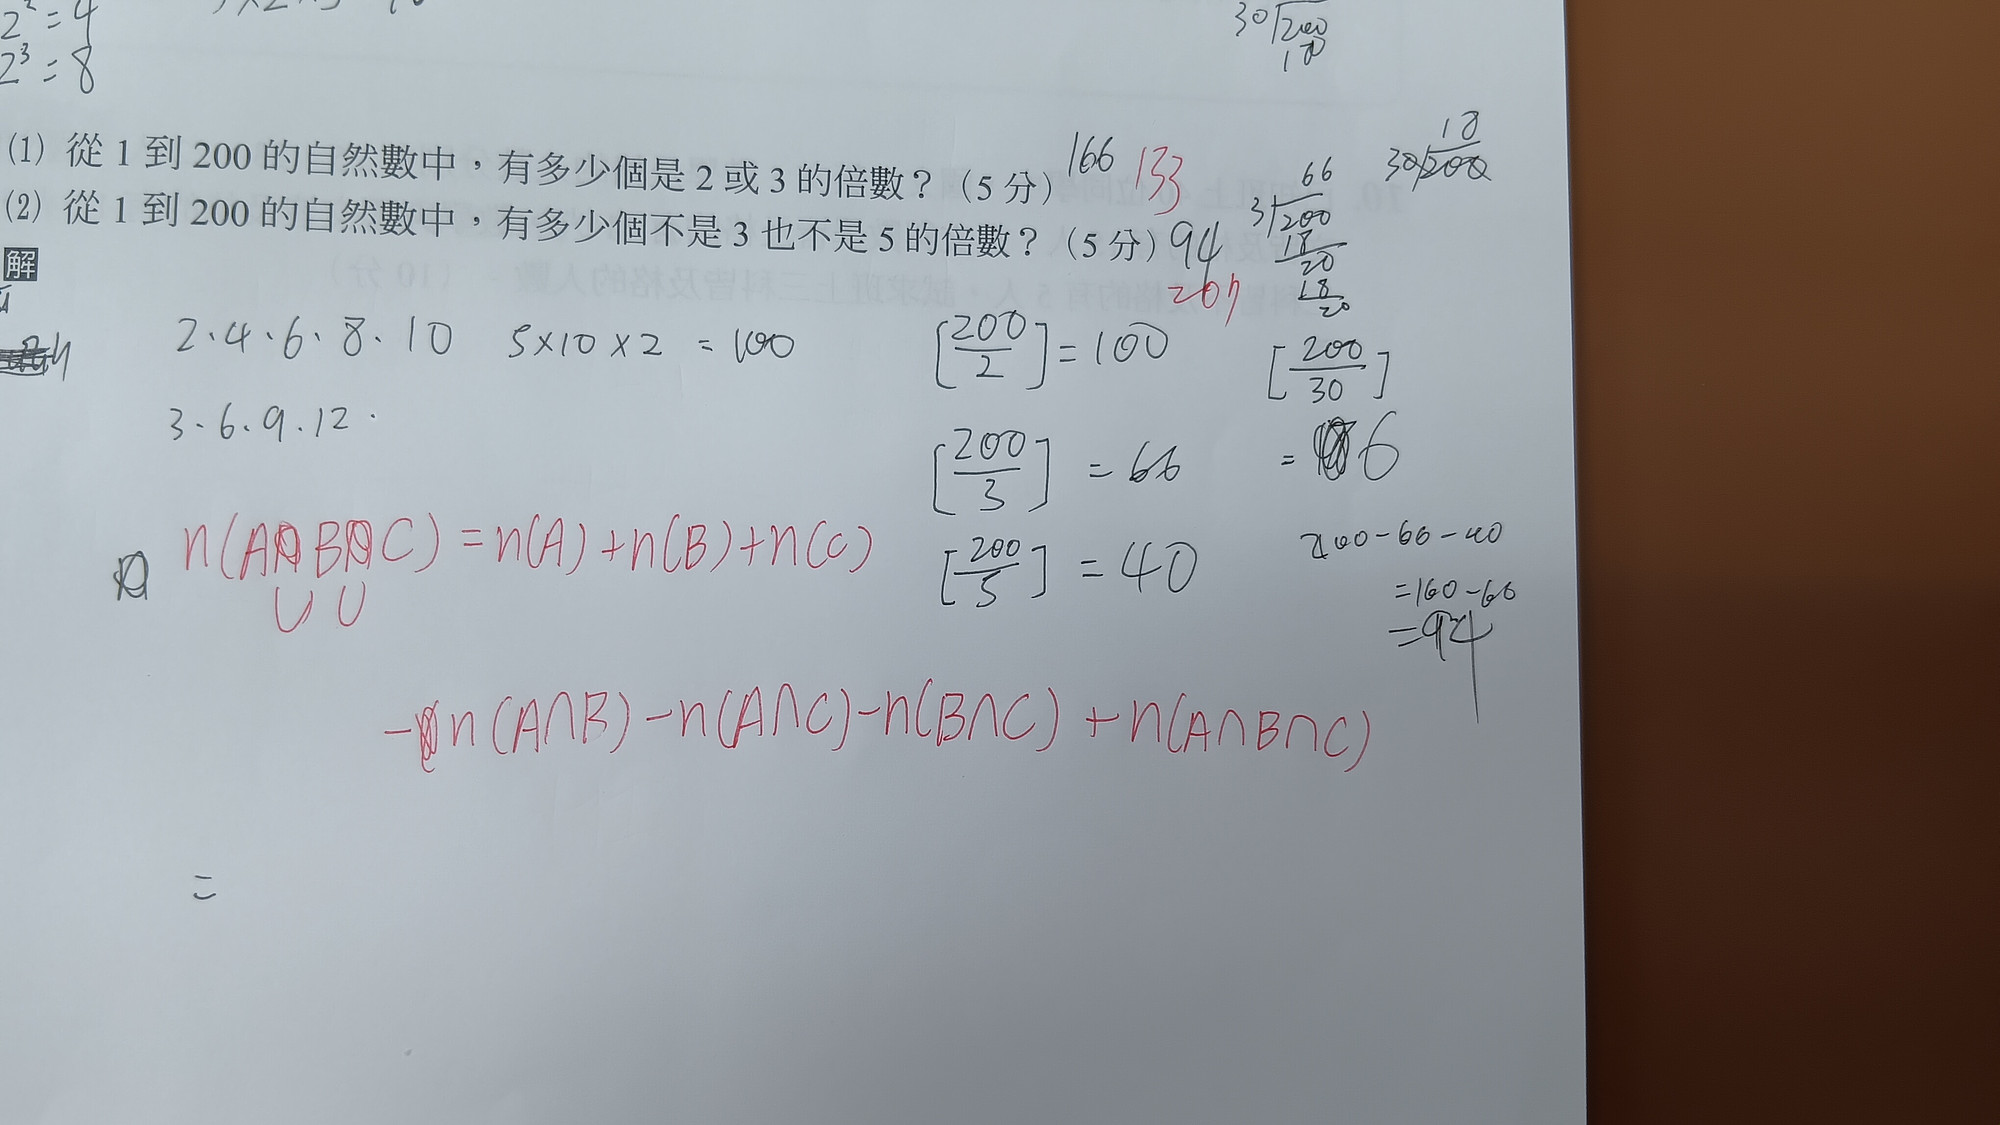 2² = 4
2³ = 8
30 200
(1) 從 1 到 200 的自然數中，有多少個是 2 或 3 的倍數？（5 分） 166 133
(2) 從 1 到 200 的自然數中，有多少個不是 3 也不是 5 的倍數？（5 分） 94
解
66
3 200
18
20
18
20
18
30 200
2．4．6．8．10 5×10×2 = 100
3．6．9．12．
[200/2] = 100
[200/3] = 66
[200/5] = 40
[200/30]
= 6
200-66-40
=160-66
=94
n(A∪B∪C) = n(A)+n(B)+n(C)
-n(A∩B)-n(A∩C)-n(B∩C)+n(A∩B∩C)
=